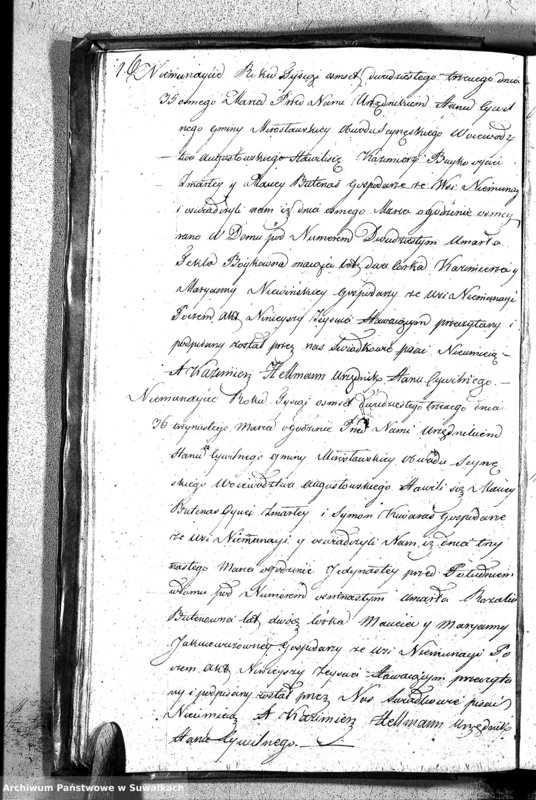 Niemunayie Roku Tysiąc osmset dwudziestego trzeciego dnia
35 osmego Marca Przed Nami Urzędnikiem Stanu Cywil
nego gminy Mirosławskiey obwodu Seyneskiego Wojewodz
twa augustowskiego Stawili się Kazimierz Boyko oyciec
Zmarłey y Maciey Butenas Gospodarze ze Wsi Niemunay
i oswiadczyli nam iż dnia osmego Marca o godzinie osmey
rano w Domu pod Numerem Dwudziestym Umarła
Tekla Boykowna maiąca lat dwa Corka Kazimierza y
Maryanny Niewińskiey Gospodarzy ze wsi Niemunayi
Poczem akt Ninieyszy Zeyscia Stawaiącym przeczytany i
podpisany został przez nas Swiadkowie pisać Nieumieią
A Kazimierz Hellmann Urzędnik Stanu Cywilnego.
Niemunayie Roku Tysiąc osmset dwudziestego trzeciego dnia
36 trzynastego Marca o godzinie Przed Nami Urzędnikiem
Stanu Cywilnego gminy Mirosławskiey obwodu Seyne
skiego Wojewodztwa augustowskiego Stawili się Maciey
Butenas Oyciec Zmarłey i Symon Gospodarze
ze wsi Niemunayi y oswiadczyli Nam iż dnia trzy
nastego Marca o godzinie Jedynastey przed Południem
w domu pod Numerem osmnastym Umarła Rozalia
Butenowna lat dwóch Corka Macieia y Maryanny
Gospodarzy ze wsi Niemunayi Po
czem akt Ninieyszy Zeyscia Stawaiącym przeczyta
ny i podpisany został przez Nas Swiadkowie pisać
Nieumieią A Kazimierz Hellmann Urzędnik
Stanu Cywilnego.
Archiwum Państwowe w Suwałkach